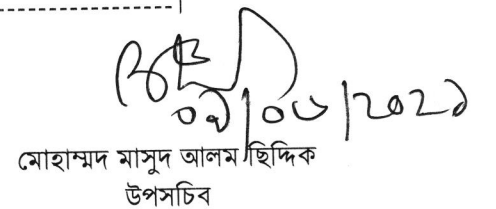 ০৯/০৮/২০২১
মোহাম্মদ মাসুদ আলম ছিদ্দিক
উপসচিব